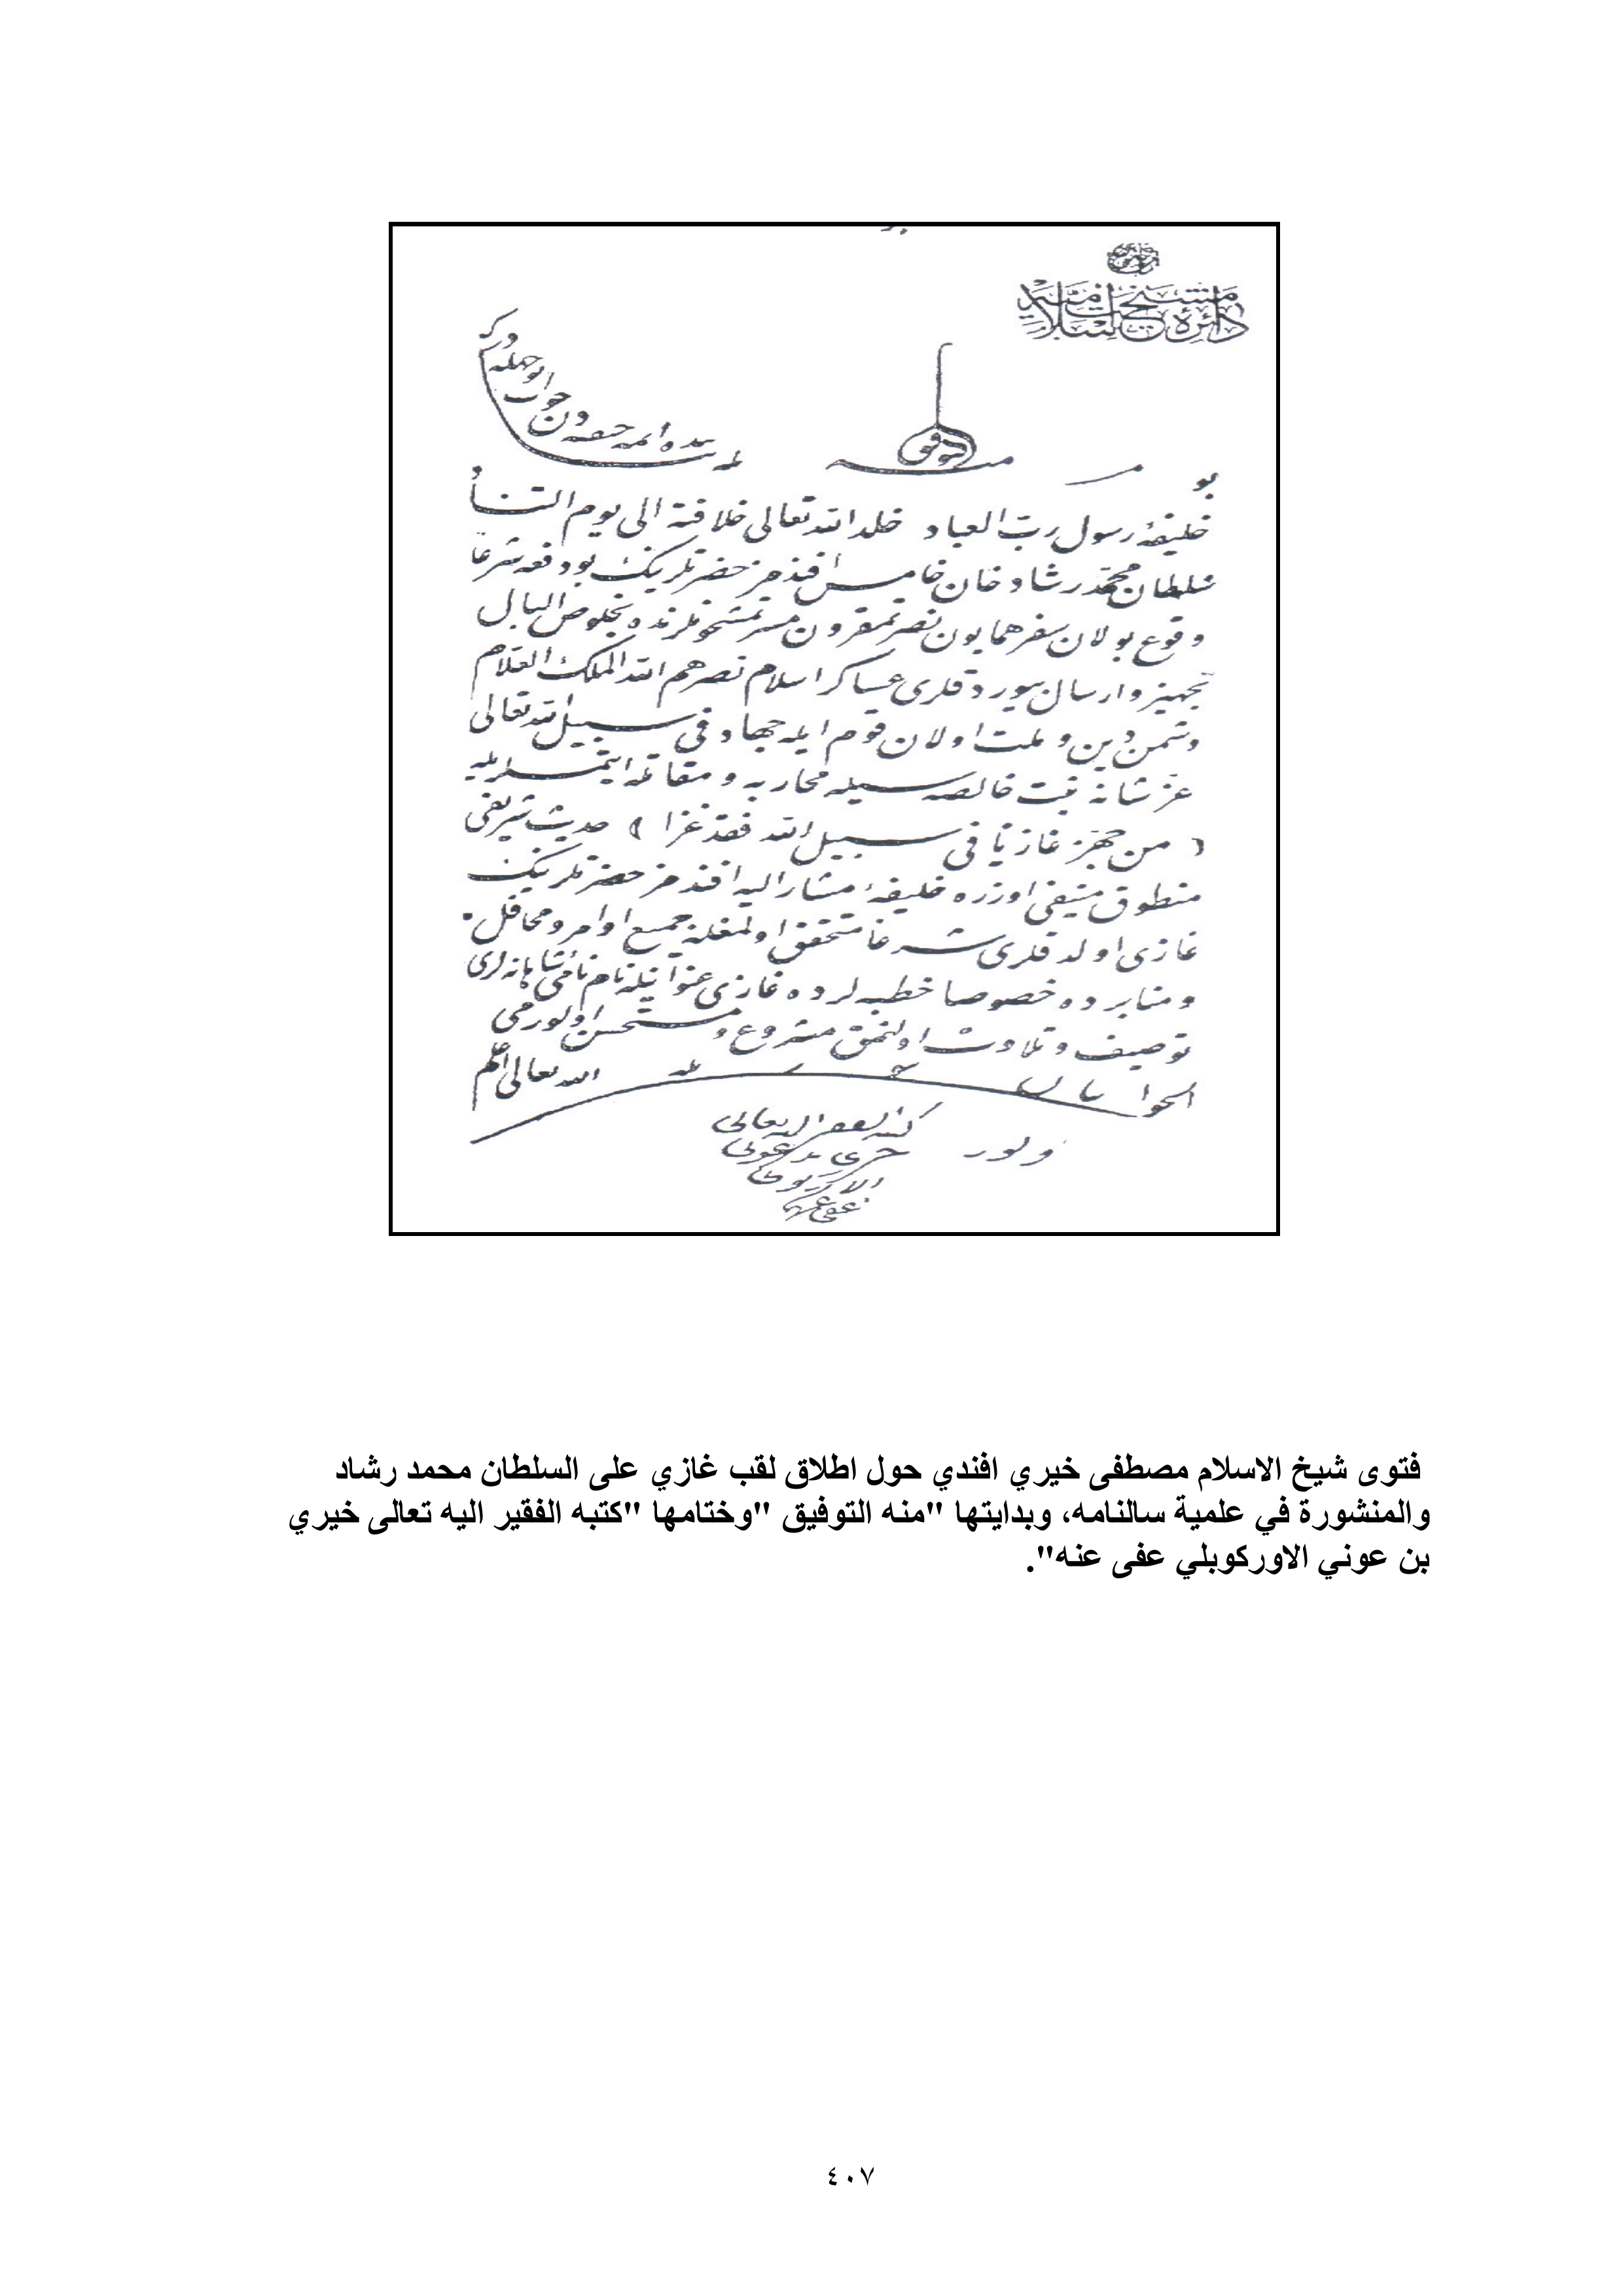 دائرهٔ مشيخت اسلاميه
منه التوفيق
بو مسئله ده ائمه حنفيه دن جواب نه وجهله در كه
خليفهٔ رسول رب العباد خلد الله تعالى خلافته الى يوم التناد
سلطان محمد رشاد خان خامس افندمز حضرتلرينك بو دفعه شرعا
وقوع بولان سفر همايون نصرتمقرون لرنده بخلوص البال
تجهيز وارسال بيوردقلرى عساكر اسلام نصرهم الله الملك العلام
دشمن دين و ملت اولان قوم ايله جهاد فى سبيل الله تعالى
عز شانه نيت خالصه سيله محاربه و مقاتله ايتمسيله
( من جهز غازيا فى سبيل الله فقد غزا ) حديث شريفى
منطوق منيفى اوزره خليفهٔ مشار اليه افندمز حضرتلرينك
غازى اولدقلرى شرعا متحقق اولمغله جميع اوامر و محافل
و منابرده خصوصا خطبه لرده غازى عنوانيله نام نامئ شاهانه لرى
توصيف و تلاوت اولنمق مشروع و مستحسن اولورمى
الجواب الله تعالى اعلم
اولور
كتبه الفقير اليه تعالى
خيرى بن عونى
الاركوبى
عفى عنه
فتوى شيخ الاسلام مصطفى خيري افندي حول اطلاق لقب غازي على السلطان محمد رشاد
والمنشورة في علمية سالنامه، وبدايتها "منه التوفيق "وختامها "كتبه الفقير اليه تعالى خيري
بن عوني الاوركوبلي عفى عنه".
٤٠٧